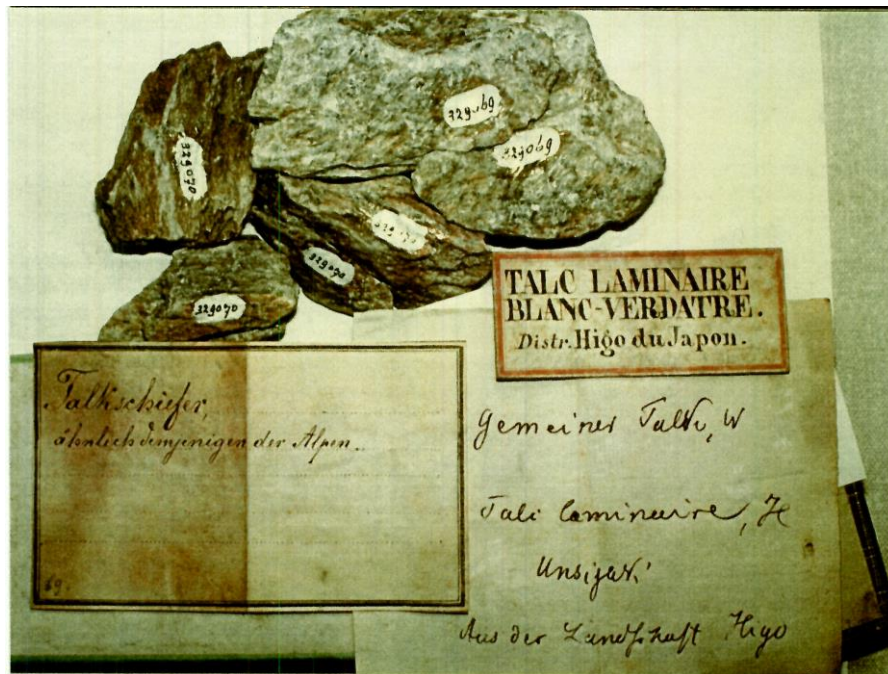 329069
329069
329070
329070
329070
329070
TALC LAMINAIRE
BLANC-VERDATRE.
Distr. Higo du Japon.
Talkschiefer,
ähnlich demjenigen der Alpen.
69
Gemeiner Talk, W
Talc laminaire, H
Aus der Landschaft Higo